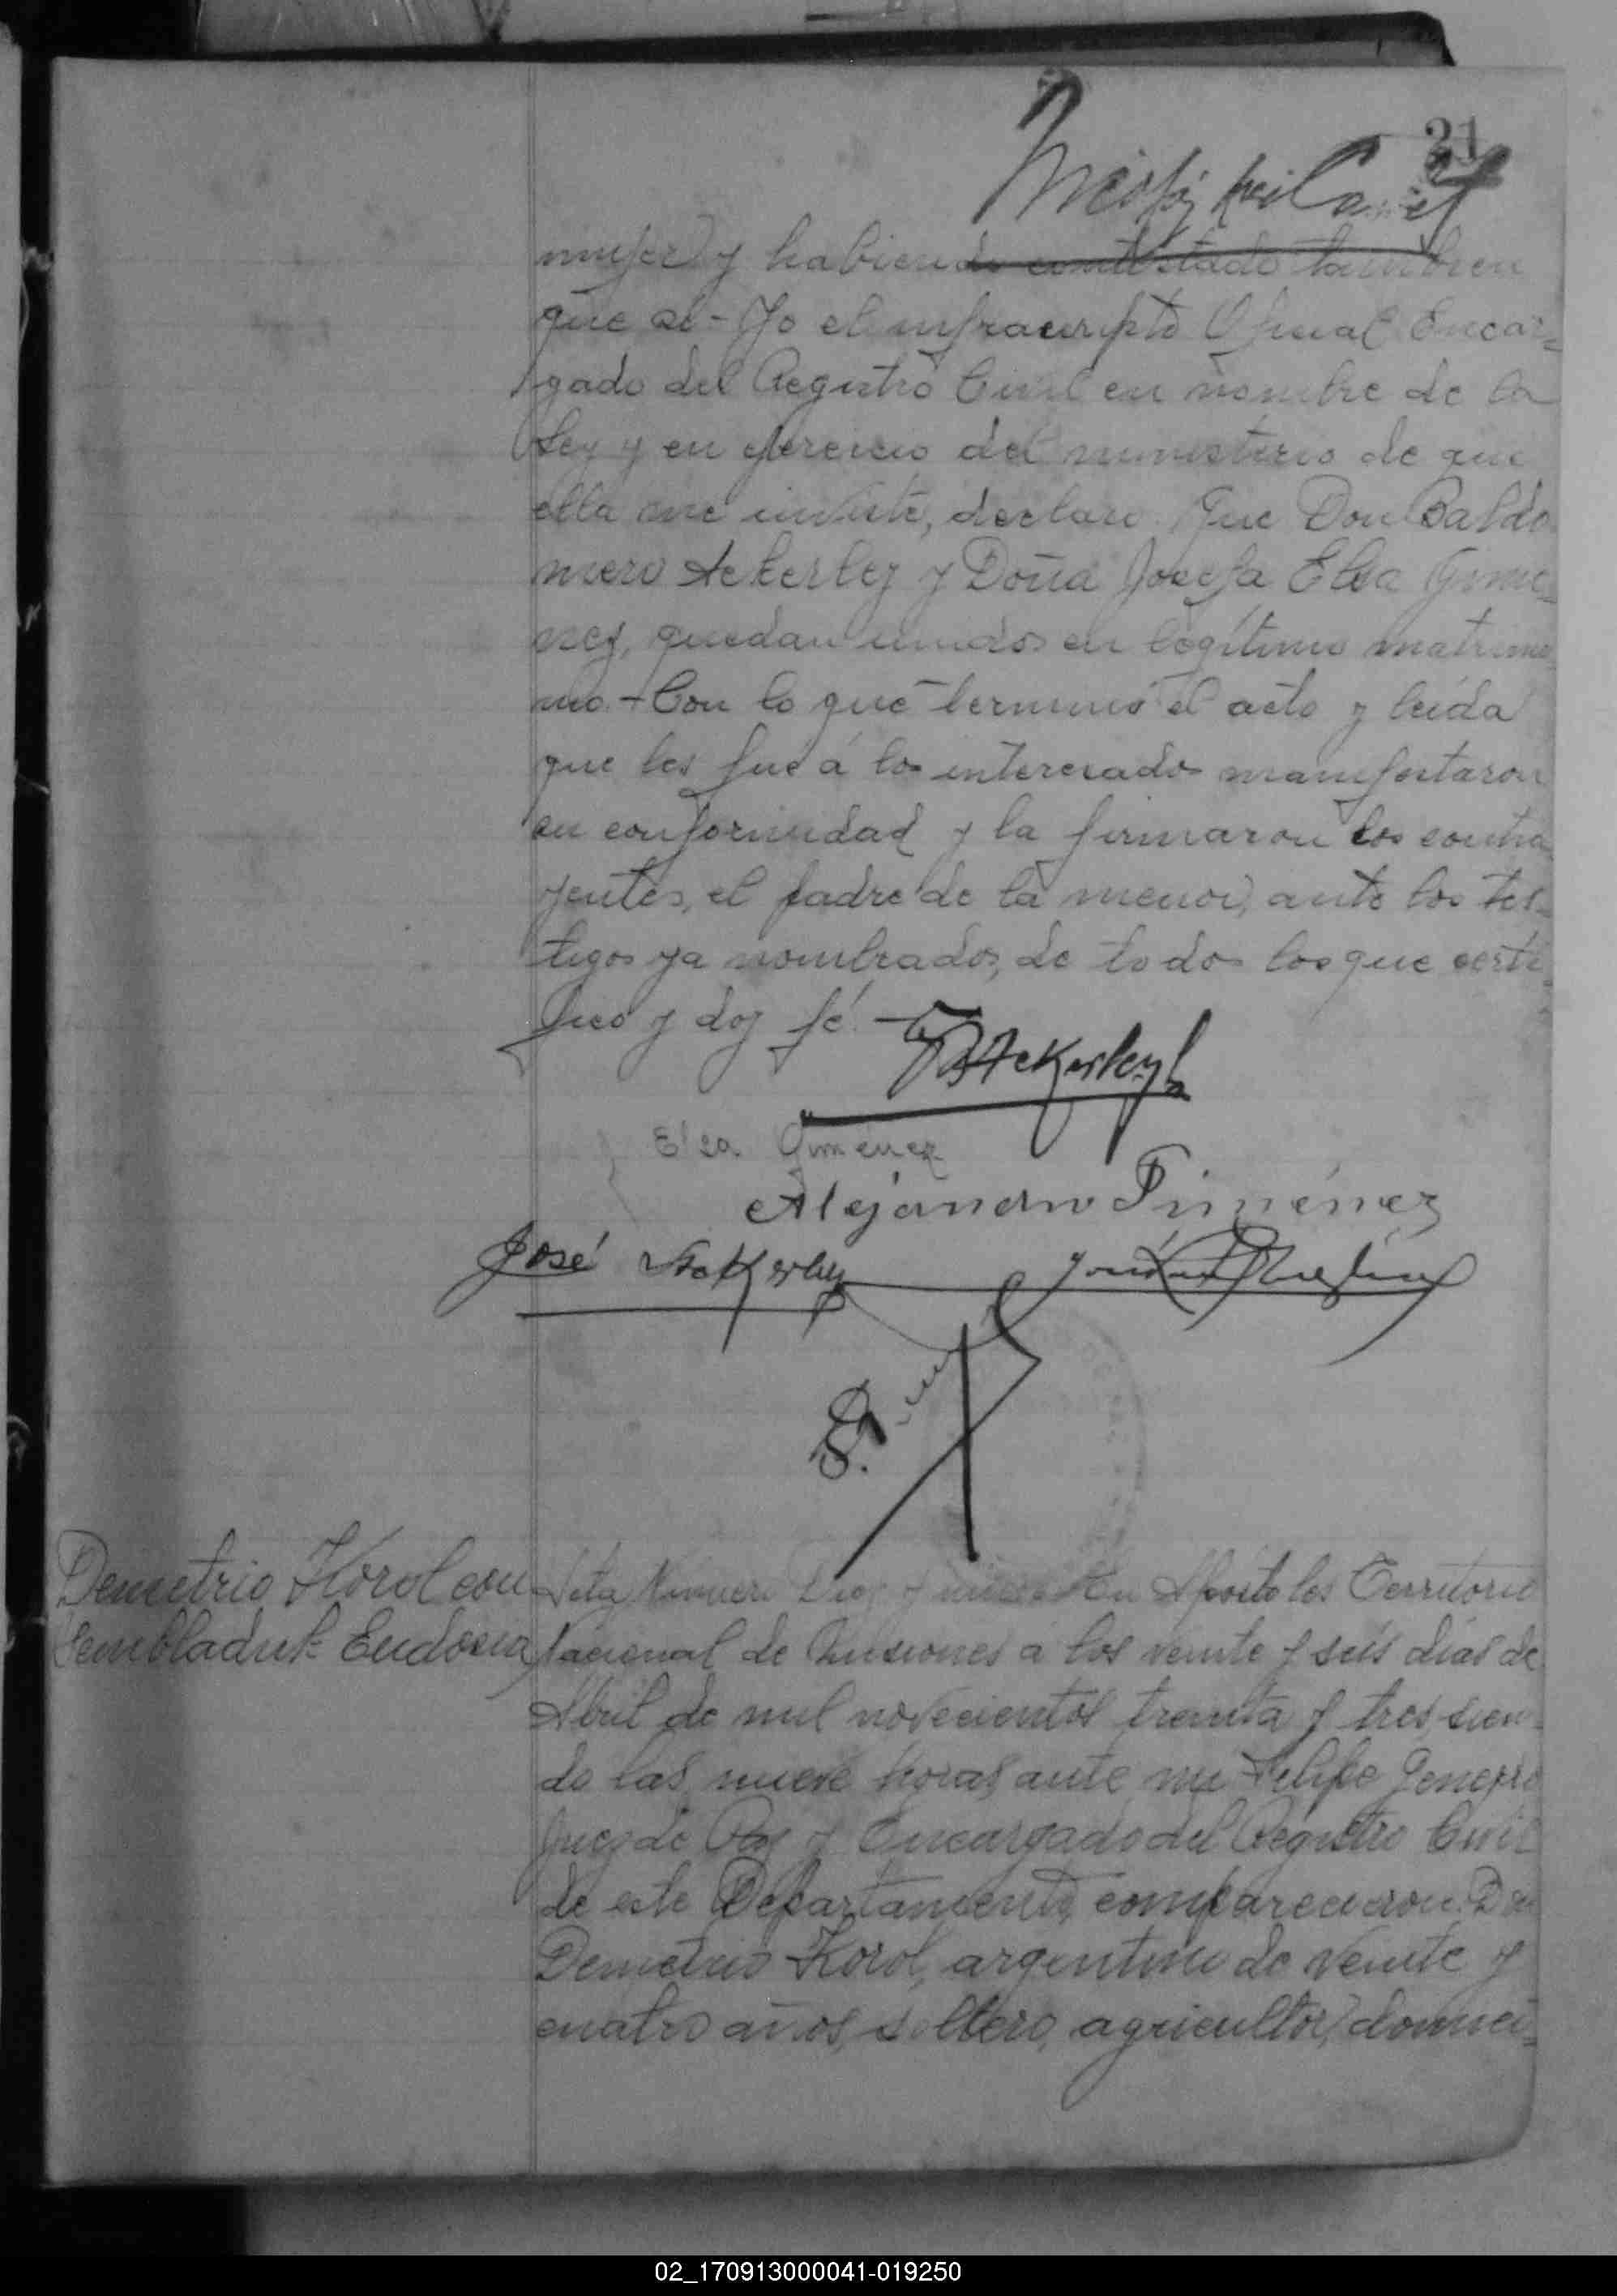 21
mujer y habiendo contestado tambien
que si - Yo el infrascripto Oficial Encar=
gado del Registro Civil en nombre de la
Ley y en ejercicio del ministerio de que
ella me inviste, declaro. Que Don Baldo
mero Ackerley y Doña Josefa Elsa Gime_
nez, quedan unidos en legítimo matrimo
nio. - Con lo que terminó el acto y leída
que les fué á los interesados manifestaron
su conformidad y la firmaron los contra
yentes, el padre de la menor, ante los tes_
tigos ya nombrados, de todos los que certi_
fico y doy fé. -
B Ackerley
Elsa Gimenez
Alejandro Jiménez
José Ackerley
Demetrio Korol con
Eudosia
Acta Número Diez y nueve En Apostoles Territorio
Nacional de Misiones a los veinte y seis días de
Abril de mil novecientos treinta y tres, sien_
do las nueve horas, ante mi Felipe
Juez de Paz y Encargado del Registro Civil
de este Departamento, comparecieron: Don
Demetrio Korol, argentino de veinte y
cuatro años, soltero, agricultor, domici=
02_170913000041-019250